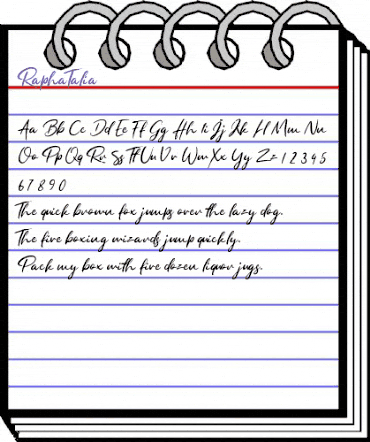 RaphaTalia
Aa Bb Cc Dd Ee Ff Gg Hh Ii Jj Kk Ll Mm Nn
Oo Pp Qq Rr Ss Tt Uu Vv Ww Xx Yy Zz 1 2 3 4 5
6 7 8 9 0
The quick brown fox jumps over the lazy dog.
The five boxing wizards jump quickly.
Pack my box with five dozen liquor jugs.